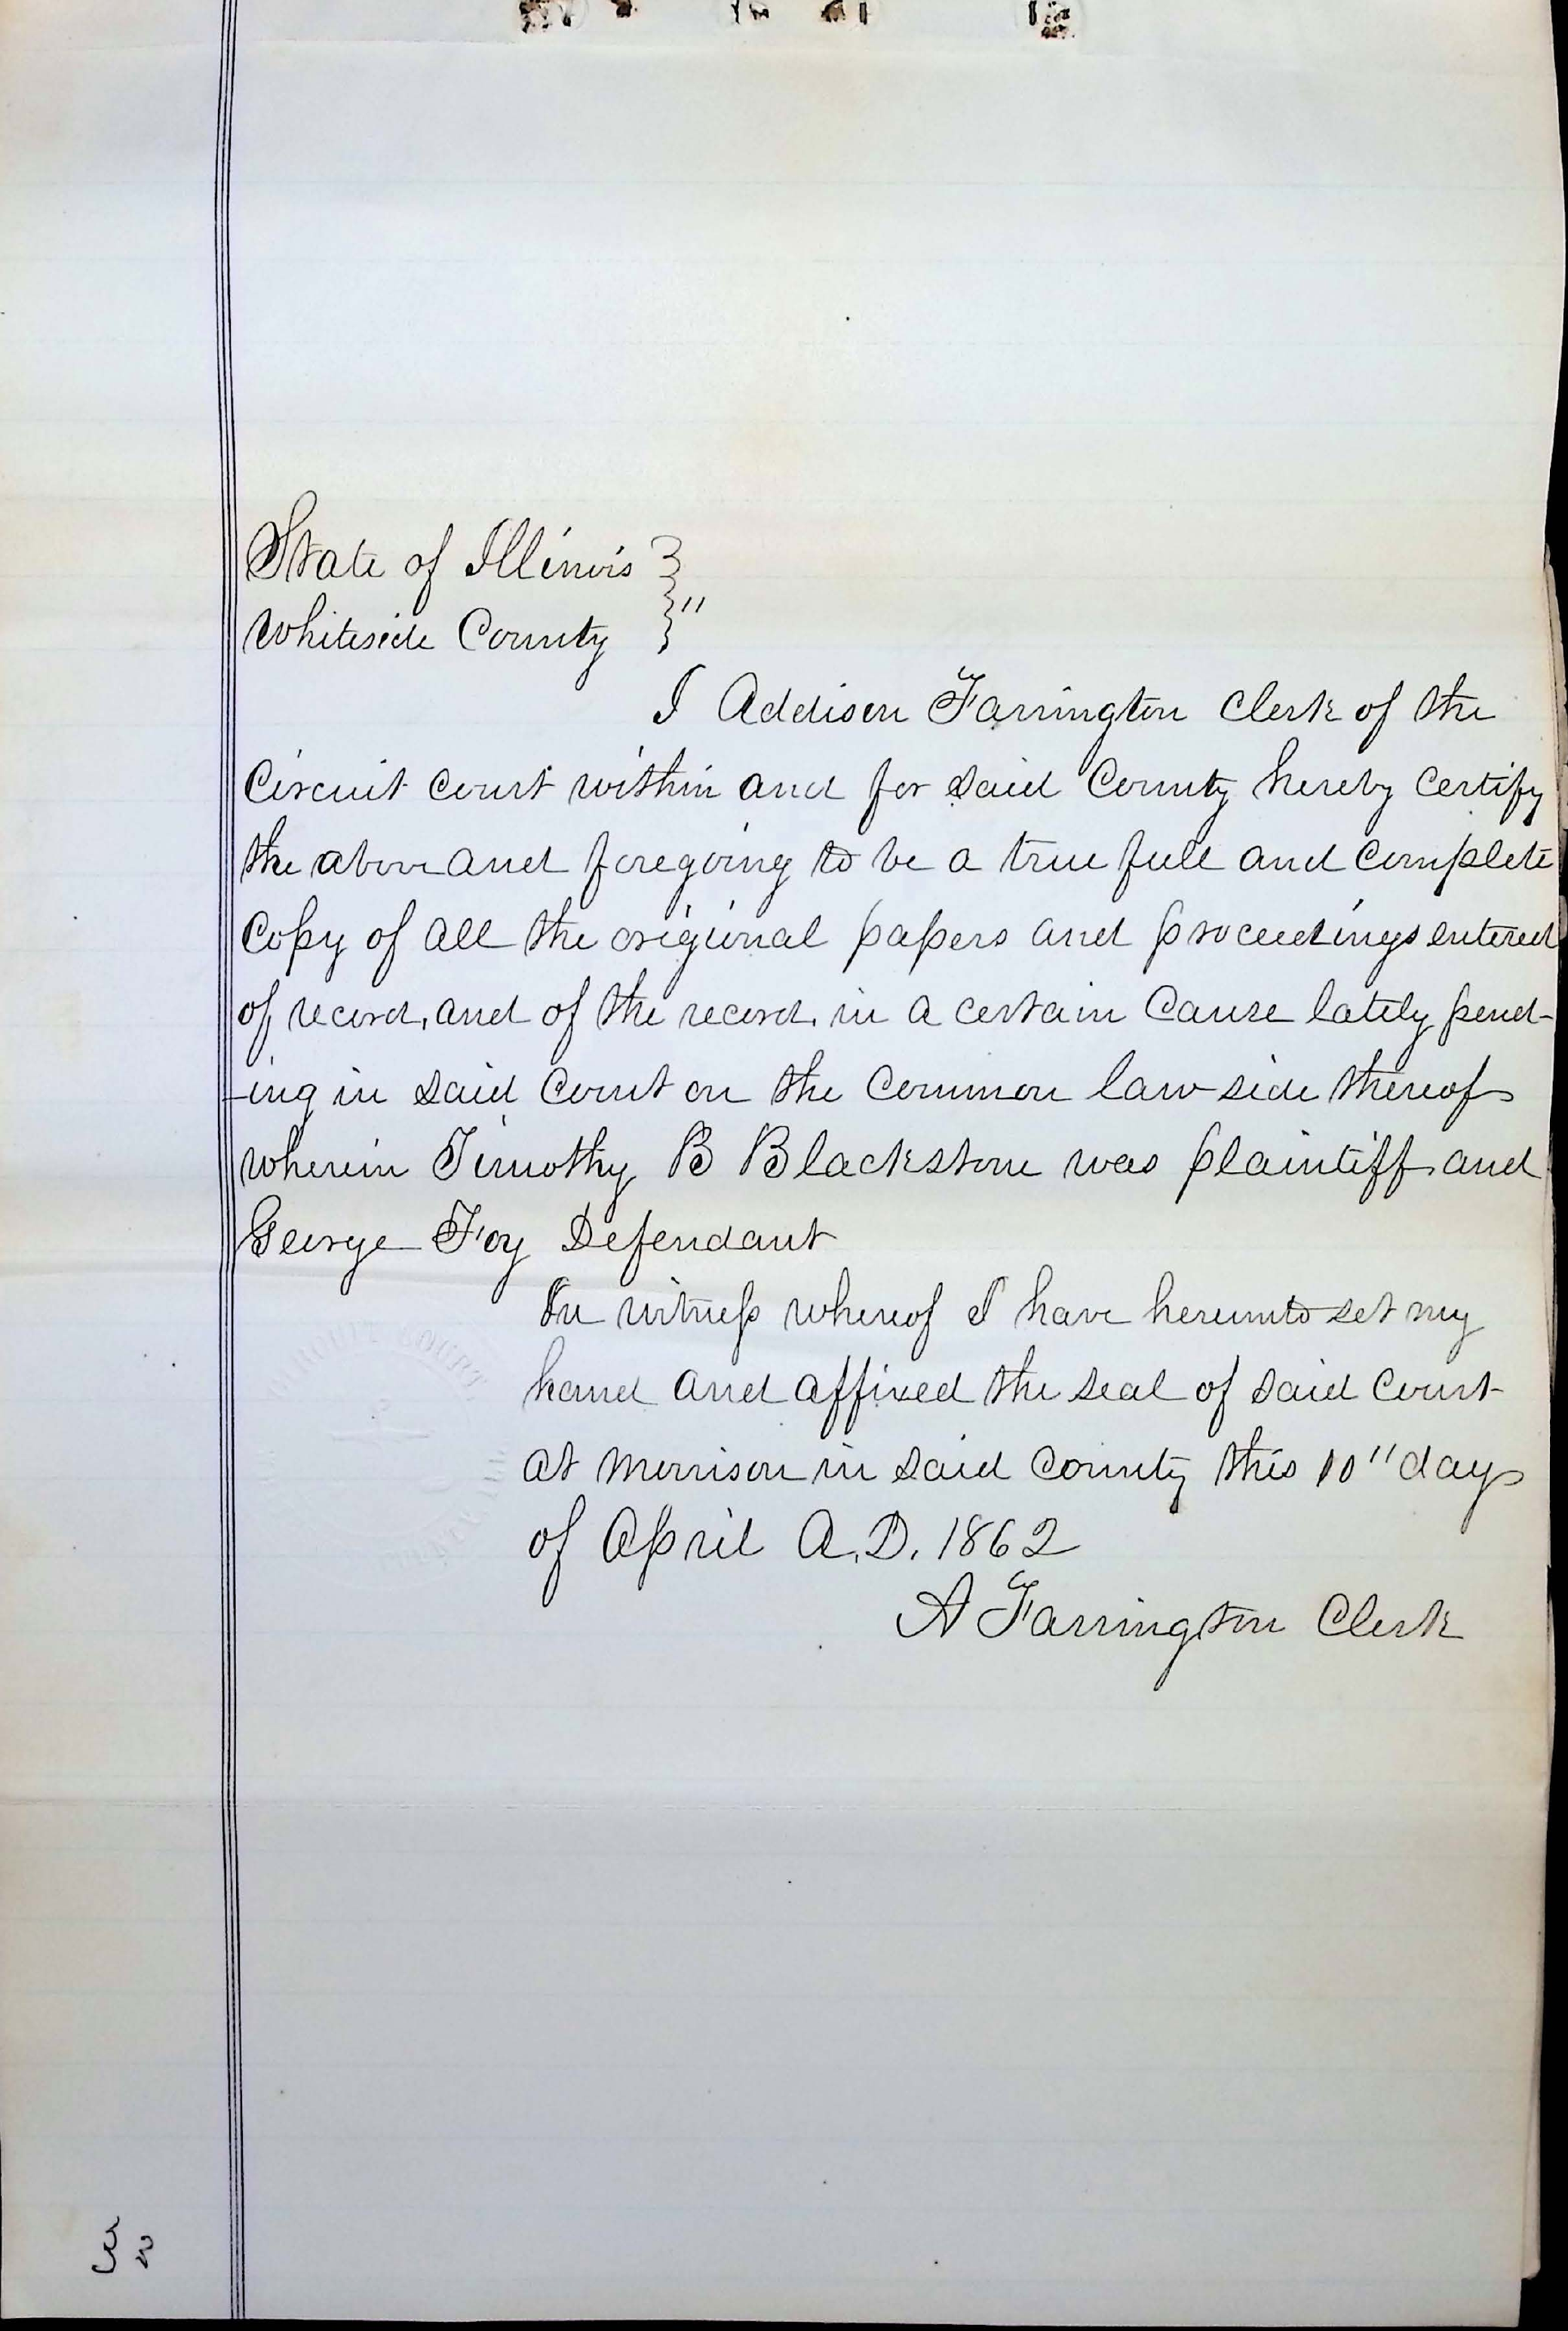 State of Illinois }
Whiteside County } "
I Addison Farrington Clerk of the
Circuit Court within and for said County hereby certify
the above and foregoing to be a true full and complete
Copy of all the origional papers and proceedings entered
of record, and of the record, in a certain Cause lately pend-
-ing in said Court on the Common law side thereof
wherein Timothy B Blackstone was plaintiff and
George Foy Defendant
In witness whereof I have hereunto set my
hand and affixed the seal of said Court
at Morrison in said County this 10" day
of April A.D. 1862
A Farrington Clerk
COURT